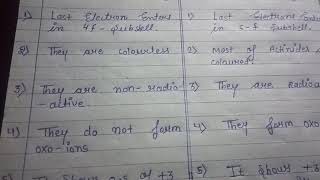 1) Last Electron Enters
in 4f - Subshell.
2) They are colourless
3) They are non-radio
-active.
4) They do not form
oxo-ions
1) Last Electrons Ente
in 5-f Subshell.
2) Most of Actinides
coloured.
3) They are Radioa
4) They form oxo
5) It shows +3